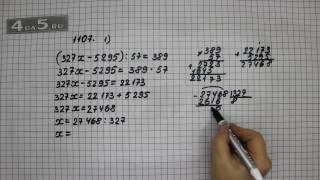 4ДА5.РУ
1107. 1)
(327x - 5295) : 57 = 389
327x - 5295 = 389 · 57
327x - 5295 = 22173
327x = 22173 + 5295
327x = 27468
x = 27468 : 327
x =
× 389
57
2723
+
22173
+ 22173
5295
27468
- 27468 | 327
2616 8